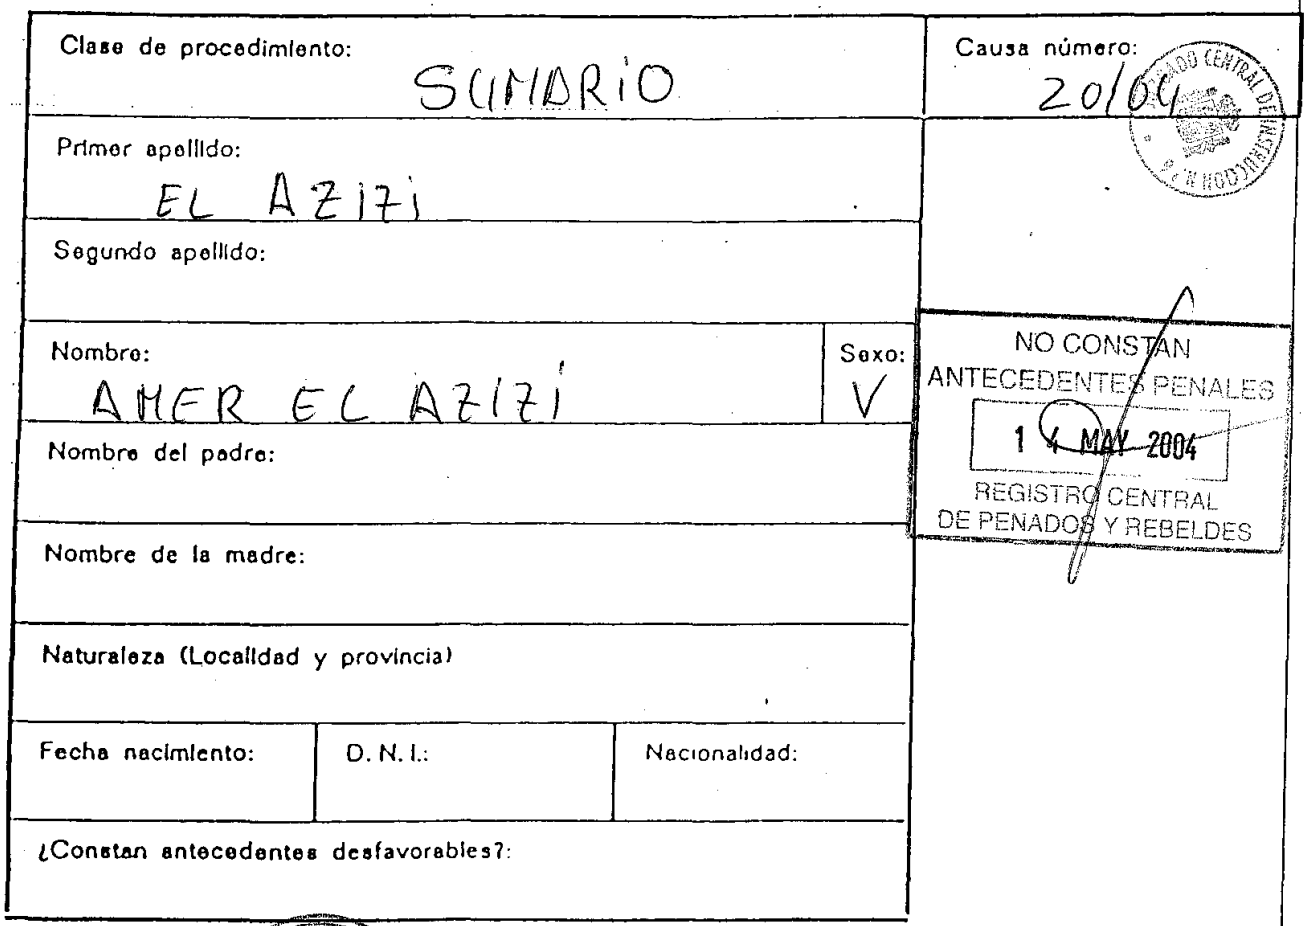 Clase de procedimiento:
SUMARIO
Causa número:
20/04
JUZGADO CENTRAL DE INSTRUCCION N.º
Primer apellido:
EL AZIZI
Segundo apellido:
Nombre:
AMER EL AZIZI
Sexo:
V
NO CONSTAN
ANTECEDENTES PENALES
14 MAY 2004
REGISTRO CENTRAL
DE PENADOS Y REBELDES
Nombre del padre:
Nombre de la madre:
Naturaleza (Localidad y provincia)
Fecha nacimiento:
D. N. I.:
Nacionalidad:
¿Constan antecedentes desfavorables?: